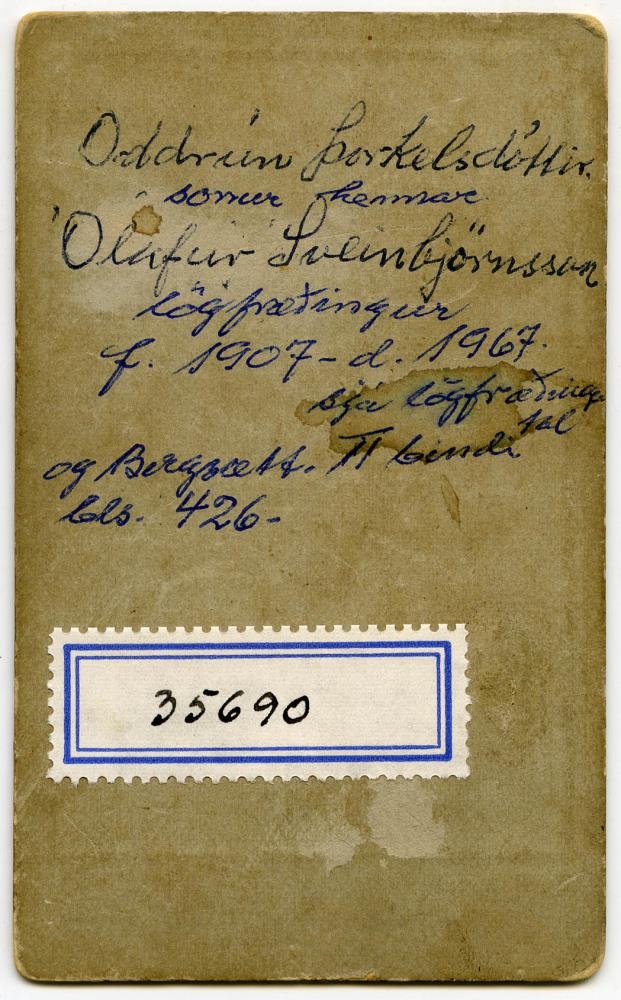 Oddrún Þorkelsdóttir.
sonur hennar
Ólafur Sveinbjörnsson
lögfræðingur
f. 1907 - d. 1967.
sjá lögfræðinga
tal
og Bergsætt. II bindi
bls. 426-
35690